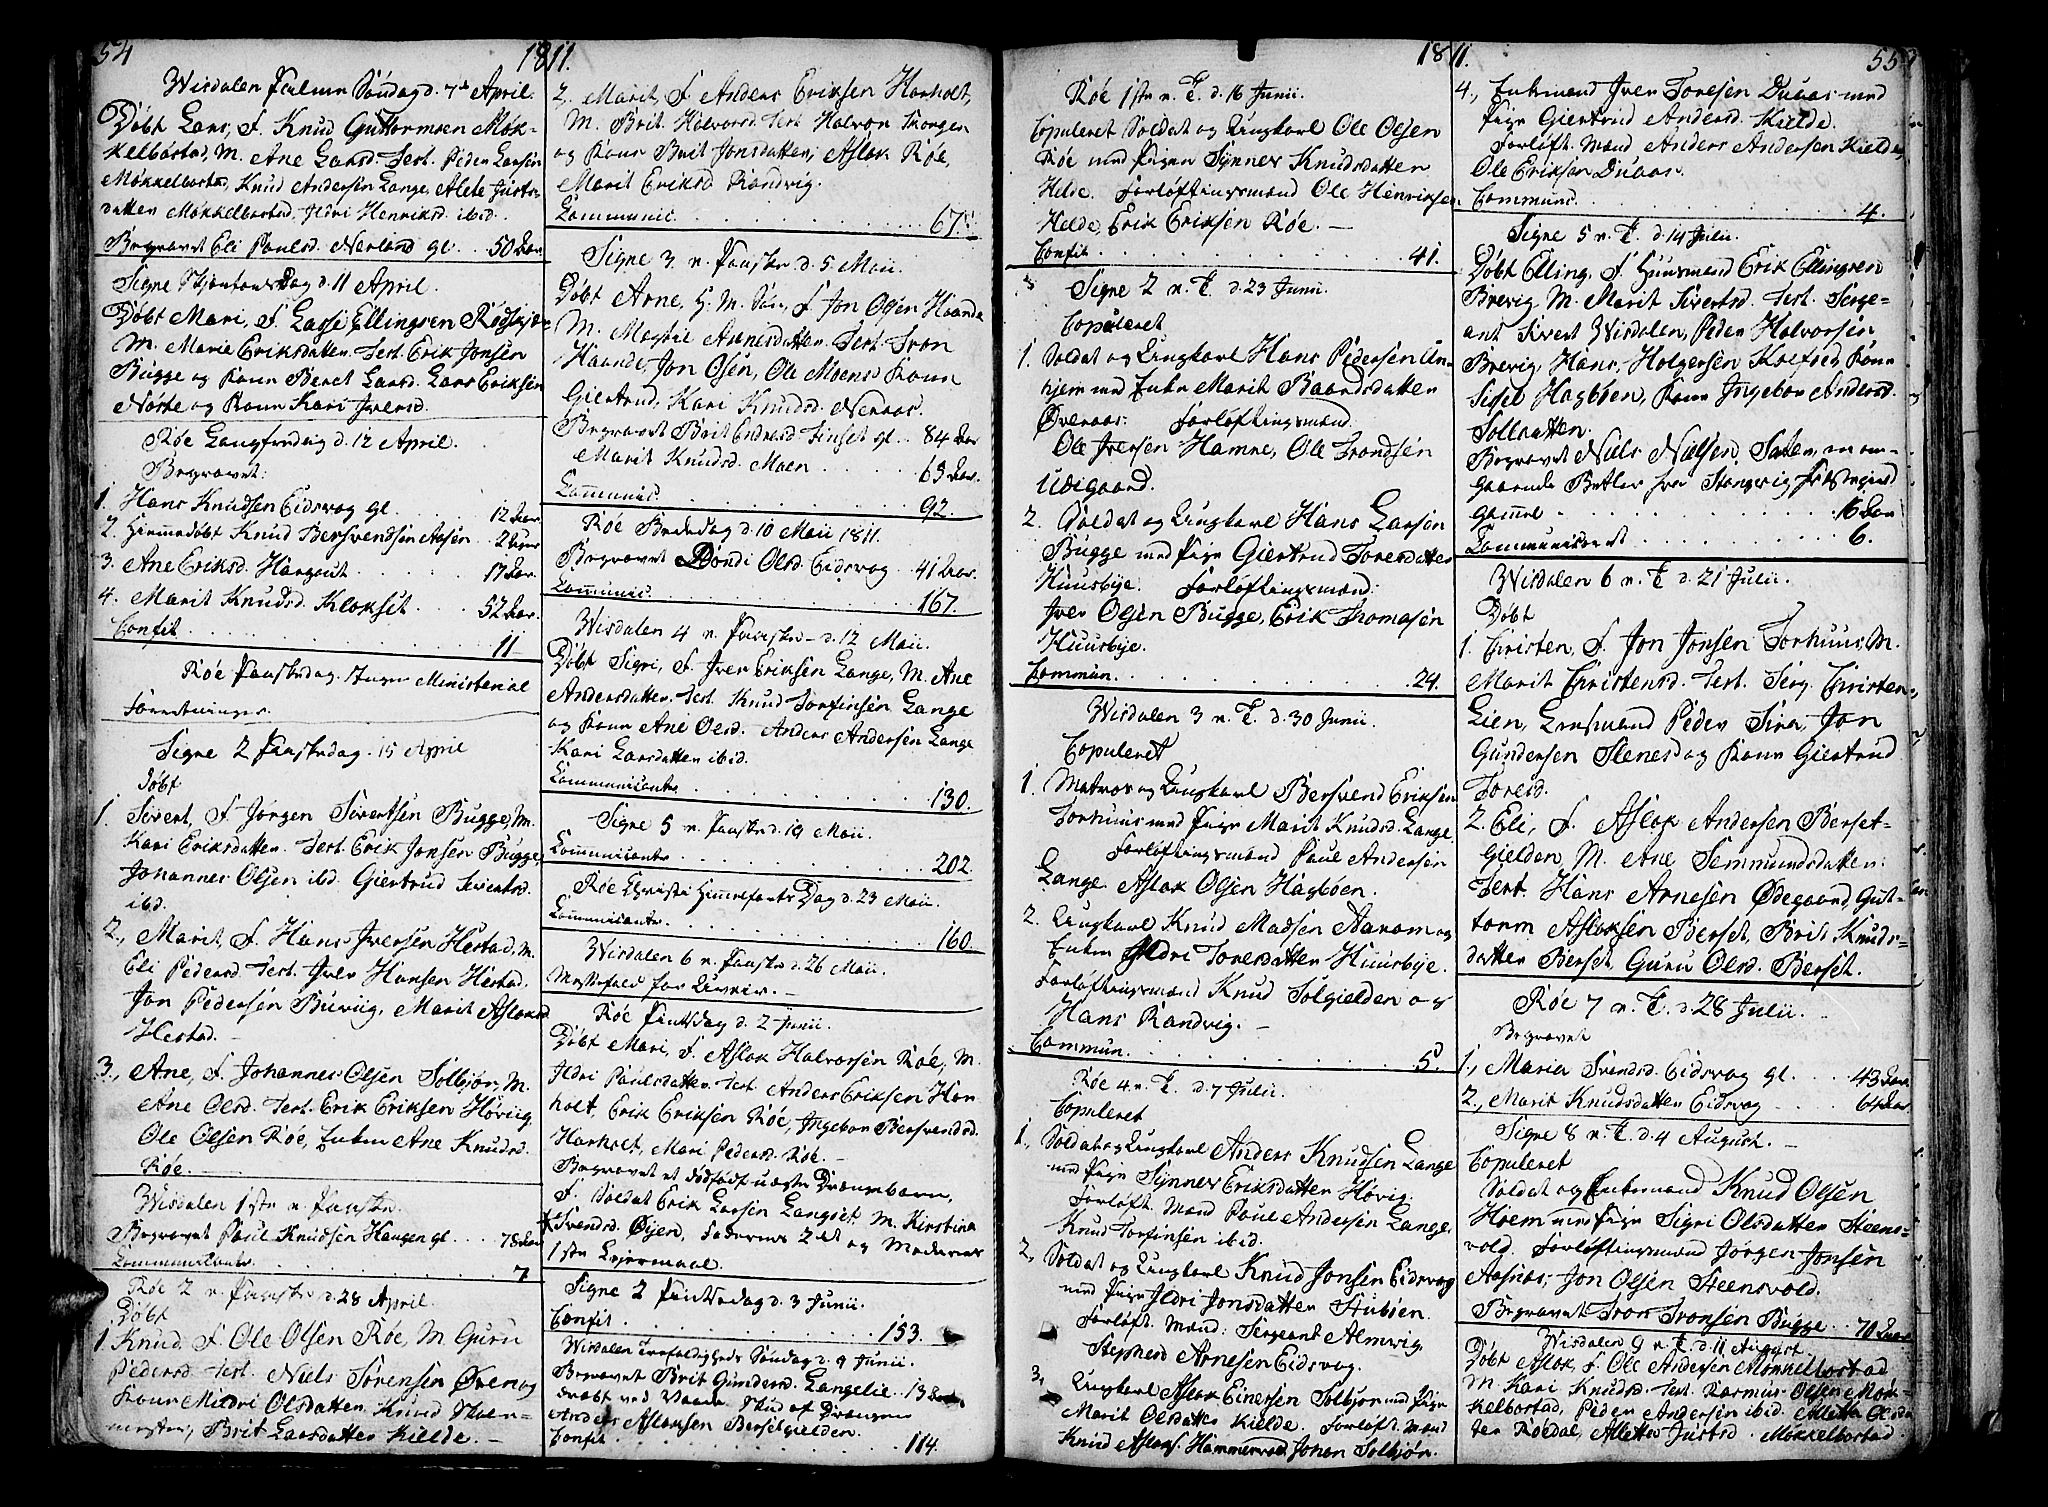 54
1811.
Wisdalen Palme Søndag d. 7de April.
Døbt Lars, F. Knud Guttormsen Møk-
kelbostad, M. Ane Larsd. Test. Peder Larsen
Møkkelbostad, Knud Andersen Lange, Alete Justs-
datter Møkkelbostad, Ildri Henriksd. ibid.
Begravet Eli Paulsd. Nerland gl. . . 50 Aar.
Signe Skjertorsdag d. 11 April.
Døbt Mari, F. Lars Ellingsen
M. Marie Eriksdatter. Test. Erik Jonsen
Bugge og Kone Beret Larsd. Lars Eriksen
Nørte og Kone Kari Iversd.
Røe Langfredag d. 12 April.
Begravet:
1. Hans Knudsen Eidsvog gl. . . 12 Aar.
2. Hiemmedøbt Knud Bersvendsen Aasen . . 2 Uger
3. Ane Eriksd. Hargaut . . . 17 Aar.
4. Marit Knudsd. Klokset . . . 52 Aar.
Confit. . . . 11
Røe Paaskedag. Ingen Ministerial
Forretninger.
Signe 2 Paaskedag. 15 April
Døbt
1. Sivert, F. Jørgen Sivertsen Bugge, M.
Kari Eriksdatter. Test. Erik Jonsen Bugge,
Johannes Olsen ibid. Giertrud Sivertsd.
ibid.
2., Marit, F. Hans Iversen Hestad, M.
Eli Pedersd. Test. Iver Hansen Hestad.
Jon Pedersen Buviig, Marit Aslaksd
Hestad. —
3., Ane, F. Johannes Olsen Solbjør, M.
Ane Olsd. Test. Erik Eriksen Høviig,
Ole Olsen Røe, Enken Ane Knudsd.
Røe.
Wisdalen 1ste e. Paaske.
Begravet Paul Knudsen Haugen gl. . . 78 Aar
Communicante. . . . 7
Røe 2 e. Paaske d. 28 April.
Døbt
1. Knud, F. Ole Olsen Røe, M. Guru
Pedersd. Test. Niels Sørensen Øveraag
Kone Mildri Olsdatter, Knud
Brit Larsdatter Kielde. —
2., Marit, F. Anders Eriksen Harholt,
M. Brit Halvorsd. Test. Halvor
og Kone Brit Jonsdatter, Aslak Røe,
Marit Eriksd Randvig.
Communic. . . . 67.
Signe 3 e. Paaske d. 5 Maii.
Døbt Arne, H. M. Døbt, F. Jon Olsen Haande
M. Magrie Arnesdatter. Test. Tron
Haande, Jon Olsen, Ole Moens Kone
Giertrud, Kari Knudsd. Neraas.
Begravet Brit Endresd. Tinset gl. . . 84 Aar
Marit Knudsd. Moen . . . 63 Aar.
Communic. . . . 92.
Røe Bededag d. 10 Maii 1811.
Begravet Dondi Olsd. Eidsvog . . 41 Aar.
Communic. . . . 167.
Wisdalen 4 e. Paaske d. 12 Maii.
Døbt Sigri, F. Iver Eriksen Lange, M. Ane
Andersdatter. Test. Knud Torfinsen Lange
og Kone Ane Olsd. Anders Andersen Lange
Kari Larsdatter ibid.
Communicante . . . 130.
Signe 5 e. Paaske d. 19 Maii.
Communicante . . . 202.
Røe Christi Himmelfarts Dag d. 23 Maii.
Communicante. . . . 160.
Wisdalen 6 e. Paaske d. 26 Maii.
Messefald for Uveir. —
Røe Pintsdag d. 2 Junii.
Døbt Mari, F. Aslak Halvorsen Røe, M.
Ildri Paulsdatter. Test. Anders Eriksen Har-
holt, Erik Eriksen Røe, Ingebor Bersvendsd.
Harholt, Mari Pedersd. Røe. —
Begravet et dødfødt uægte Drengebarn,
F. Soldat Erik Larsen Langset, M. Kirstina
Svendsd. Øijen, Faderens 2det og Moderens
1ste Leiermaal.
Signe 2 Pintsedag d. 3 Junii.
Confit. . . . 153.
Wisdalen Trefoldigheds Søndag d. 9 Junii.
Begravet Brit Gundersd. Langelie . . 13 Aar
dræbt ved Vaade Skud af Drengen
Anders Aslaksen Bersetgielden.
Confit . . . 114.
1811.
55
Røe 1ste e. T. d. 16 Junii.
Copuleret Soldat og Ungkarl Ole Olsen
Røe med Pigen Synnev Knudsdatter
Helde. Forløftingsmænd Ole Henriksen
Helde, Erik Eriksen Røe. —
Confit . . . 41.
Signe 2 e. T. d. 23 Junii.
Copuleret
1. Soldat og Ungkarl Hans Pedersen Un-
hjem med Enke Marit Baardsdatter
Øveraas. Forløftingsmænd.
Ole Iversen Hamne, Ole Trondsen
Udigaard.
2. Soldat og Ungkarl Hans Larsen
Bugge med Pige Giertrud Toresdatter
Huusbye. Forløftingsmænd:
Iver Olsen Bugge, Erik Thomasen
Huusbye.
Commun. . . . 24.
Wisdalen 3 e. T. d. 30 Junii.
Copuleret
1. Matros og Ungkarl Bersvend Eriksen
Torhuus med Pige Marit Knudsd. Lange.
Forløftingsmænd Paul Andersen
Lange. Aslak Olsen Hagbøen.
2. Ungkarl Knud Madsen Aarom og
Enken Ildri Toresdatter Huusbye.
Forløftingsmænd Knud Solgielden og
Hans Randvig. —
Commun. . . . 5.
Røe 4 e. T. d. 7 Julii.
Copuleret
1., Soldat og Ungkarl Anders Knudsen Lange
med Pige Synnev Eriksdatter Høvig.
Forløft. Mænd Paul Andersen Lange,
Knud Torfinsen ibid.
2., Soldat og Ungkarl Knud Jonsen Eidsvog
med Pige Ildri Jonsdatter Stubøen.
Forløft. Mænd: Sergeant Almvig
Stephen Arnesen Eidsvog.
3., Ungkarl Aslak Einersen Solbjør med Pige
Marit Olsdatter Kielde. Forløft. Mænd
Knud Aslaks. Hammervold Johan Solbjør.
4., Enkemand Iver Toresen Duaas med
Pige Giertrud Andersd. Kielde.
Forløft. Mænd Anders Andersen Kielde,
Ole Eriksen Duaas.
Communic. . . . 4.
Signe 5 e. T. d. 14 Julii.
Døbt Elling, F. Huusmand Erik Ellingsen
Brevig, M. Marit Sivertsd. Test. Serge-
ant Sivert Wisdalen, Peder Halvorsen
Brevig, Hans Holgersen Kone
Sidsel Hagbøen, Kone Ingebor Andersd.
Begravet Niels Nielsen, en om-
gaaende Betler fra Stangvig Præstegield
gammel . . . 16 Aar
Communiceret . . . 6.
Wisdalen 6 e. T. d. 21 Julii.
Døbt
1. Christen, F. Jon Jonsen Torhuus, M.
Marit Christensd. Test. Serg. Christen
Lien, Peder Sira, Jon
Gundersen Stenes og Kone Giertrud
Toresd.
2. Eli, F. Aslak Andersen Berset-
gielden, M. Ane Semmundsdatter.
Test. Hans Arnesen Ødegaard, Gut-
torm Aslaksen Berset, Brit Knuds-
datter Berset, Guru Olsd. Berset.
Røe 7 e. T. d. 28 Julii.
Begravet
1., Maria Svendsd. Eidsvog gl. . . 43 Aar.
2., Marit Knudsdatter Eidsvog . . . 64 Aar
Signe 8 e. T. d. 4 August. —
Copuleret
Soldat og Enkemand Knud Olsen
Hoem med Pige Sigri Olsdatter Steens-
vold. Forløftingsmænd Jørgen Jonsen
Aasnæs, Jon Olsen Steensvold.
Begravet Tron Tronsen Bugge . . 70 Aar
Wisdalen 9 e. T. d. 11 August.
Døbt Aslak, F. Ole Andersen Møkkelbostad
M. Kari Knudsd. Test. Rasmus Olsen Møk-
kelbostad, Peder Andersen ibid. Alette Olsda-
ter Røedal, Alette Justsd. Møkkelbostad